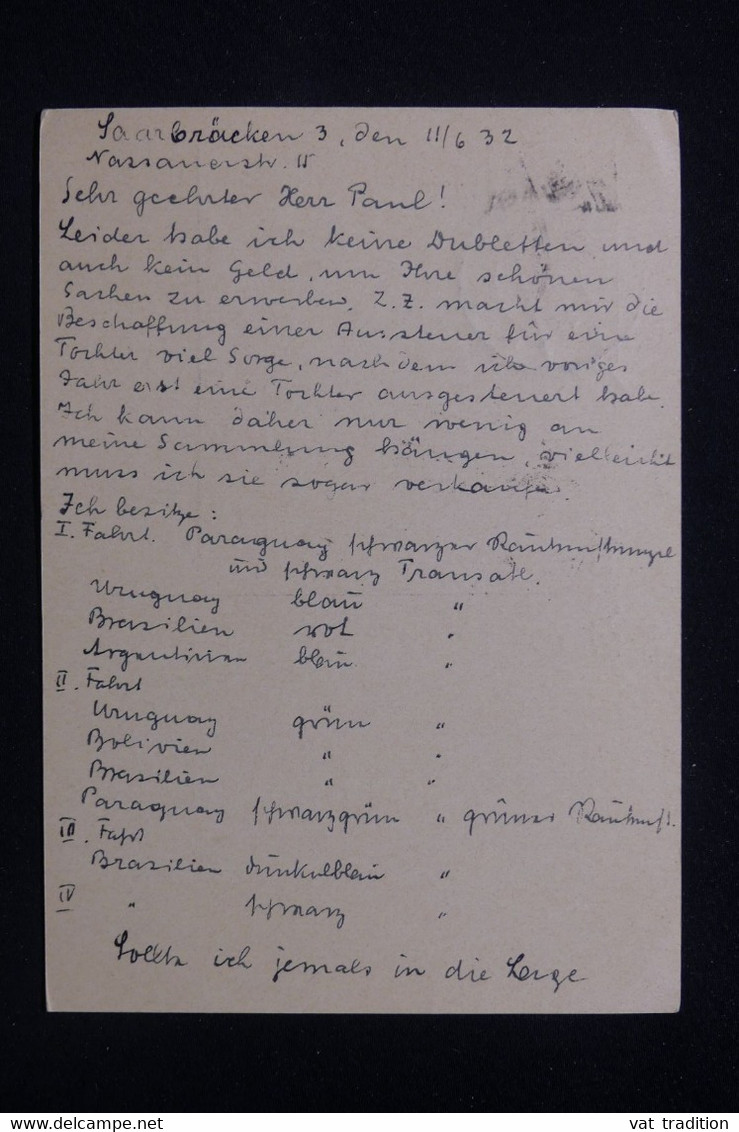 Saarbrücken 3, den 11/6 32
Nassauerstr. 15
Sehr geehrter Herr Paul!
Leider habe ich keine Dubletten und
auch kein Geld, um Ihre schönen
Sachen zu erwerben. Z.Z. macht mir die
Beschaffung einer Aussteuer für eine
Tochter viel Sorge, nachdem ich voriges
Jahr erst eine Tochter ausgesteuert habe.
Ich kann daher nur wenig an
meine Sammlung hängen, vielleicht
muss ich sie sogar verkaufen.
Ich besitze:
I. Fahrt. Paraguay schwarzer
und schwarz Transatl.
Uruguay blau "
Brasilien rot "
Argentinien blau "
II. Fahrt
Uruguay grün "
Bolivien " "
Brasilien " "
Paraguay schwarzgrün " grüner
III. Fahrt
Brasilien dunkelblau "
IV " schwarz "
Sollte ich jemals in die Lage
vat tradition